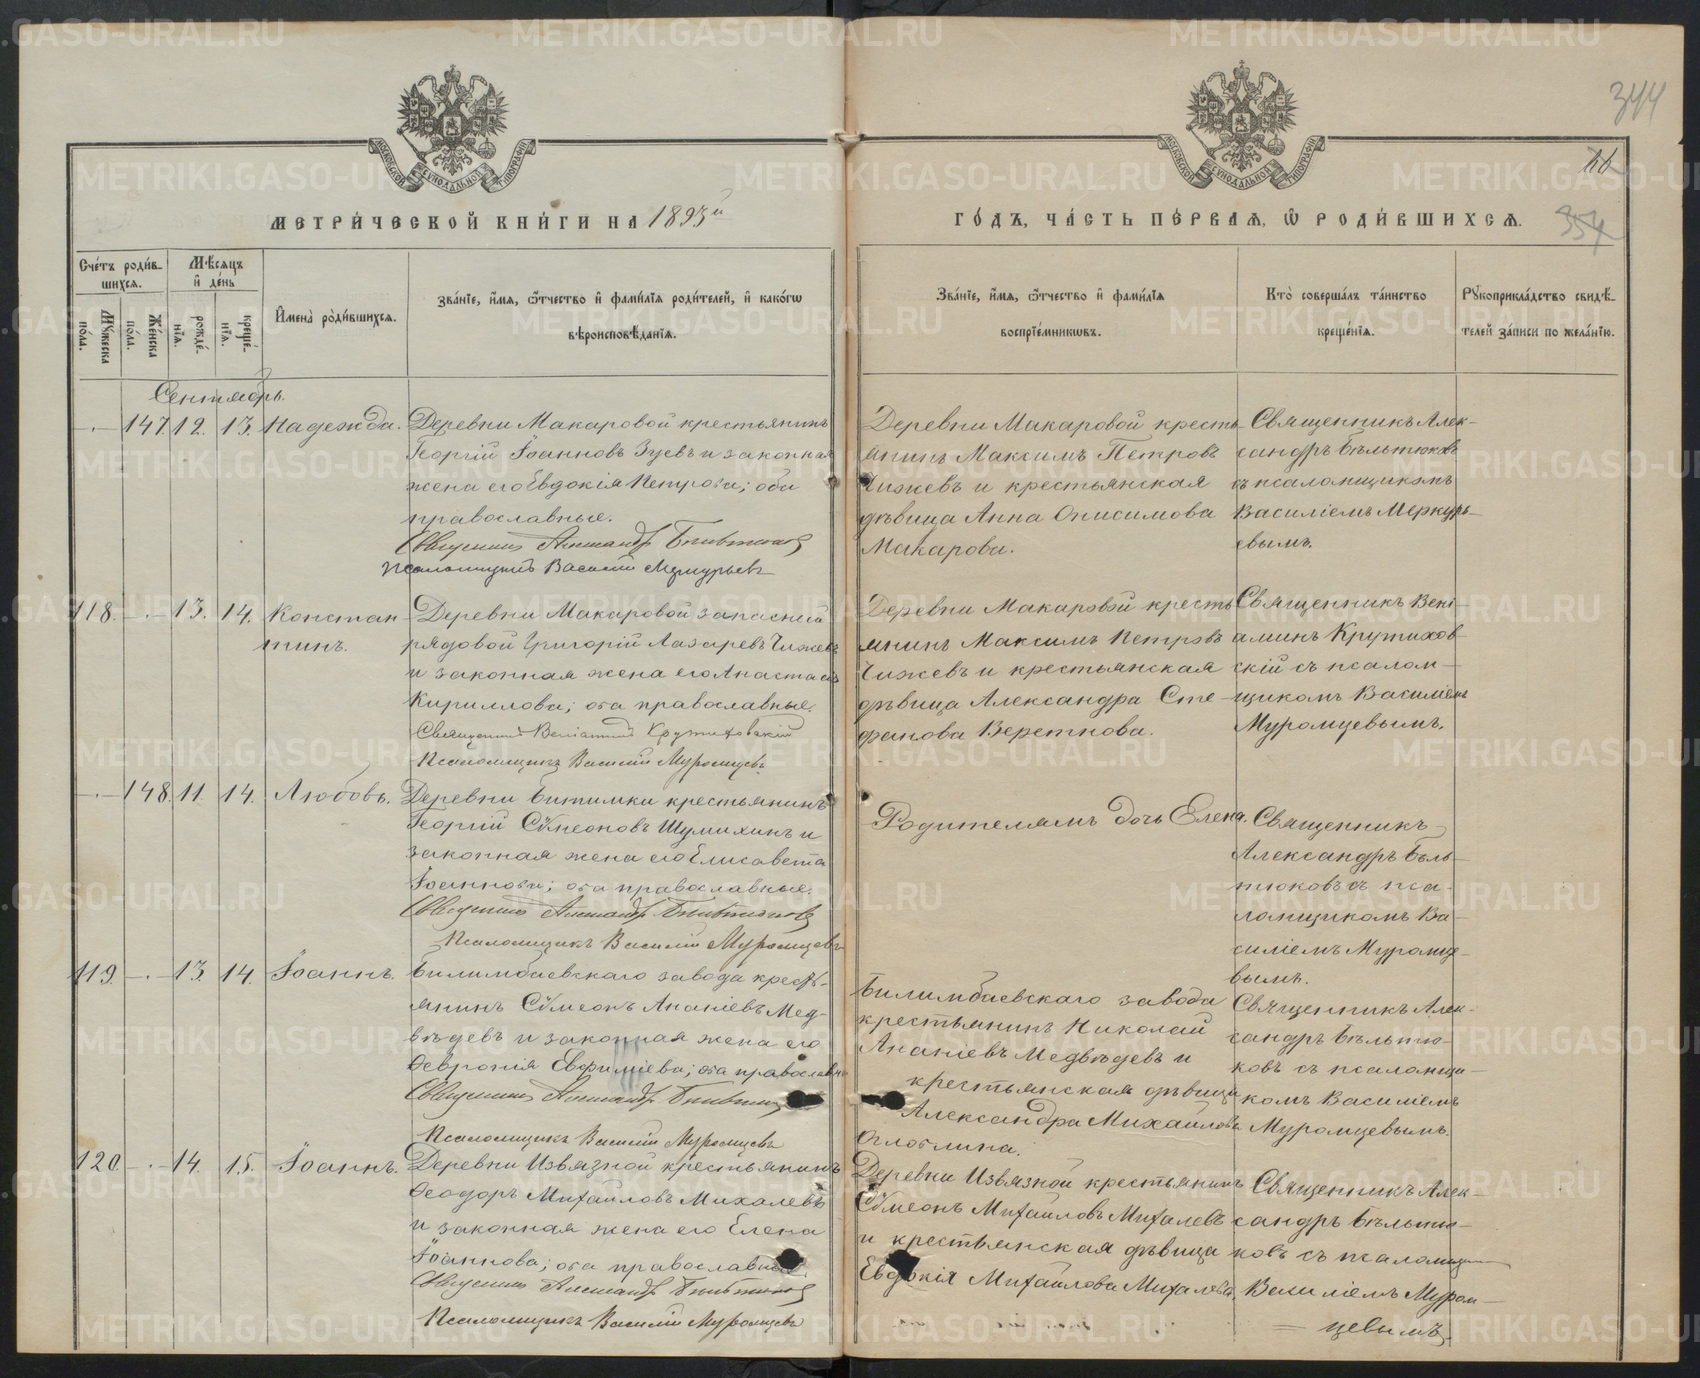 344
МОСКОВСКОЙ СѴНОДАЛЬНОЙ ТИПОГРАФІИ
МОСКОВСКОЙ СѴНОДАЛЬНОЙ ТИПОГРАФІИ
МЕТРИ́ЧЕСКОЙ КНИ́ГИ НА 1893й
ГО́ДЪ, ЧА́СТЬ ПЕ́РВАѦ, Ѡ҆ РОДИ́ВШИХСѦ.
354
Сче́тъ роди́в-
шихсѧ.
Мѣ́сѧцъ
и҆ де́нь
Мꙋ́жеска
по́ла.
Же́нска
по́ла.
рожде́-
нїѧ.
креще́-
нїѧ.
И҆мена̀ роди́вшихсѧ.
Зва́нїе, и҆́мѧ, ѻ҆́тчество и҆ фами́лїѧ роди́телей, и҆ како́гѡ
вѣроисповѣ́данїѧ.
Зва́нїе, и҆́мѧ, ѻ҆́тчество и҆ фами́лїѧ
воспрїе́мникѡвъ.
Кто̀ соверша́лъ та́инство
креще́нїѧ.
Рꙋкоприкла́дство свидѣ́-
телей за́писи по жела́нїю.
Сентябрь.
147. 12. 13. Надежда.
Деревни Макаровой крестьянинъ
Георгій Іоанновъ Зуевъ и законная
жена его Евдокія Петрова; оба
православные.
Священникъ Александр Бѣльтюков
Псаломщикъ Василій Меркурьевъ
Деревни Макаровой кресть-
янинъ Максимъ Петровъ
Чижевъ и крестьянская
дѣвица Анна Онисимова
Макарова.
Священникъ Алек-
сандръ Бѣльтюковъ
съ псаломщикомъ
Василіемъ Меркурь-
евымъ.
118. 13. 14. Констан-
тинъ.
Деревни Макаровой запасный
рядовой Григорій Лазаревъ Чижевъ
и законная жена его Анастасія
Кириллова; оба православные.
Священникъ Веніаминъ Крутиховскій
Псаломщикъ Василій Муромцевъ
Деревни Макаровой кресть-
янинъ Максимъ Петровъ
Чижевъ и крестьянская
дѣвица Александра Сте-
фанова Веретнова.
Священникъ Вені-
аминъ Крутихов-
скій съ псалом-
щикомъ Василіемъ
Муромцевымъ.
148. 11. 14. Любовь.
Деревни Битимки крестьянинъ
Георгій Сѵмеоновъ Шумихинъ и
законная жена его Елисавета
Іоаннова; оба православные.
Священникъ Александр Бѣльтюков
Псаломщикъ Василій Муромцевъ
Родителямъ дочь Елена.
Священникъ
Александръ Бѣль-
тюковъ съ пса-
ломщикомъ Ва-
силіемъ Муромце-
вымъ.
119. 13. 14. Іоаннъ.
Билимбаевскаго завода кресть-
янинъ Сѵмеонъ Ананіевъ Мед-
вѣдевъ и законная жена его
Ѳевронія Евфиміева; оба православн
Священникъ Александр Бѣльтюков
Псаломщикъ Василій Муромцевъ
Билимбаевскаго завода
крестьянинъ Николай
Ананіевъ Медвѣдевъ и
крестьянская дѣвица
Александра Михайлова
Оглоблина.
Священникъ Алек-
сандръ Бѣльтю-
ковъ съ псаломщи-
комъ Василіемъ
Муромцевымъ.
120. 14. 15. Іоаннъ.
Деревни Извязной крестьянинъ
Ѳеодоръ Михайловъ Михалевъ
и законная жена его Елена
Іоаннова; оба православные.
Священникъ Александр Бѣльтюков
Псаломщикъ Василій Муромцевъ
Деревни Извязной крестьянинъ
Сѵмеонъ Михайловъ Михалевъ
и крестьянская дѣвица
Евдокія Михайлова Михалева.
Священникъ Алек-
сандръ Бѣльтю-
ковъ съ псаломщи
Василіемъ Муром-
цевымъ.